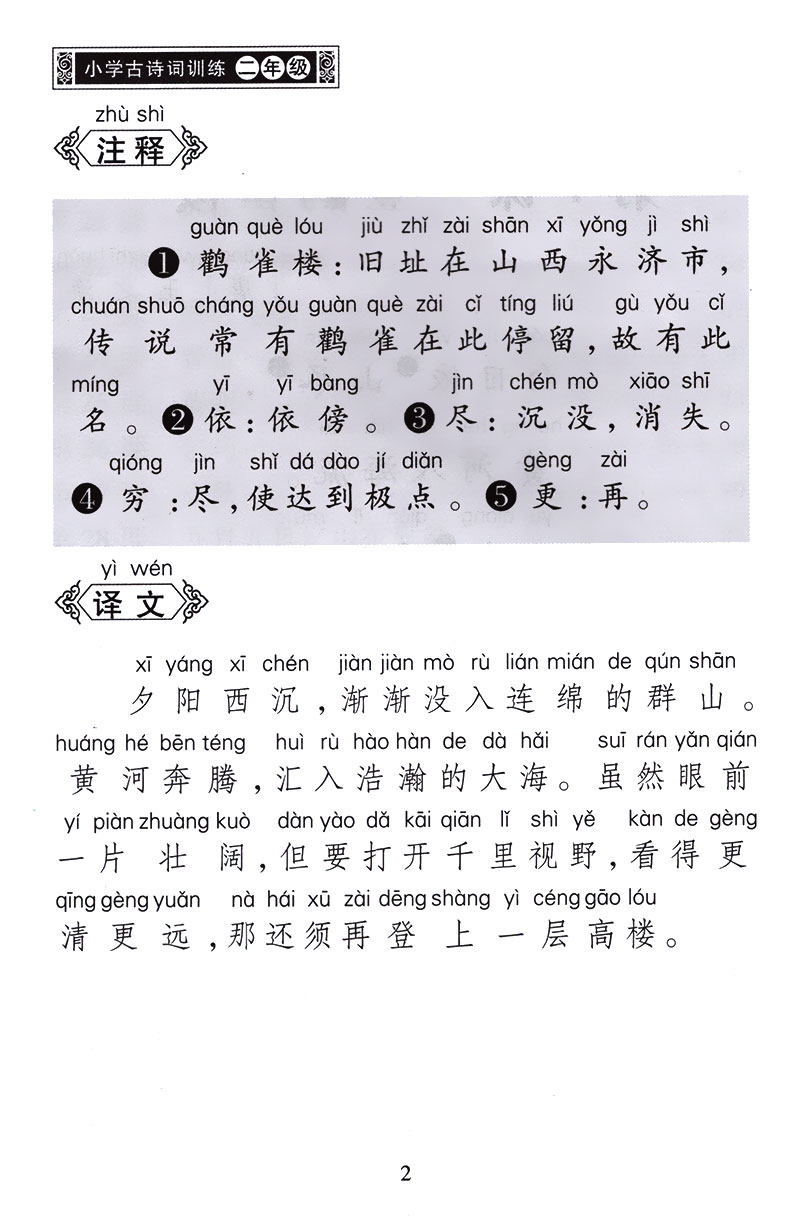 小学古诗词训练 二年级
zhù shì
注释
guàn què lóu jiù zhǐ zài shān xī yǒng jì shì
❶ 鹳雀楼:旧址在山西永济市,
chuán shuō cháng yǒu guàn què zài cǐ tíng liú gù yǒu cǐ
传说常有鹳雀在此停留,故有此
míng yī yī bàng jìn chén mò xiāo shī
名。❷ 依:依傍。❸ 尽:沉没,消失。
qióng jìn shǐ dá dào jí diǎn gèng zài
❹ 穷:尽,使达到极点。❺ 更:再。
yì wén
译文
xī yáng xī chén jiàn jiàn mò rù lián mián de qún shān
夕阳西沉,渐渐没入连绵的群山。
huáng hé bēn téng huì rù hào hàn de dà hǎi suī rán yǎn qián
黄河奔腾,汇入浩瀚的大海。虽然眼前
yí piàn zhuàng kuò dàn yào dǎ kāi qiān lǐ shì yě kàn de gèng
一片壮阔,但要打开千里视野,看得更
qīng gèng yuǎn nà hái xū zài dēng shàng yì céng gāo lóu
清更远,那还须再登上一层高楼。
2